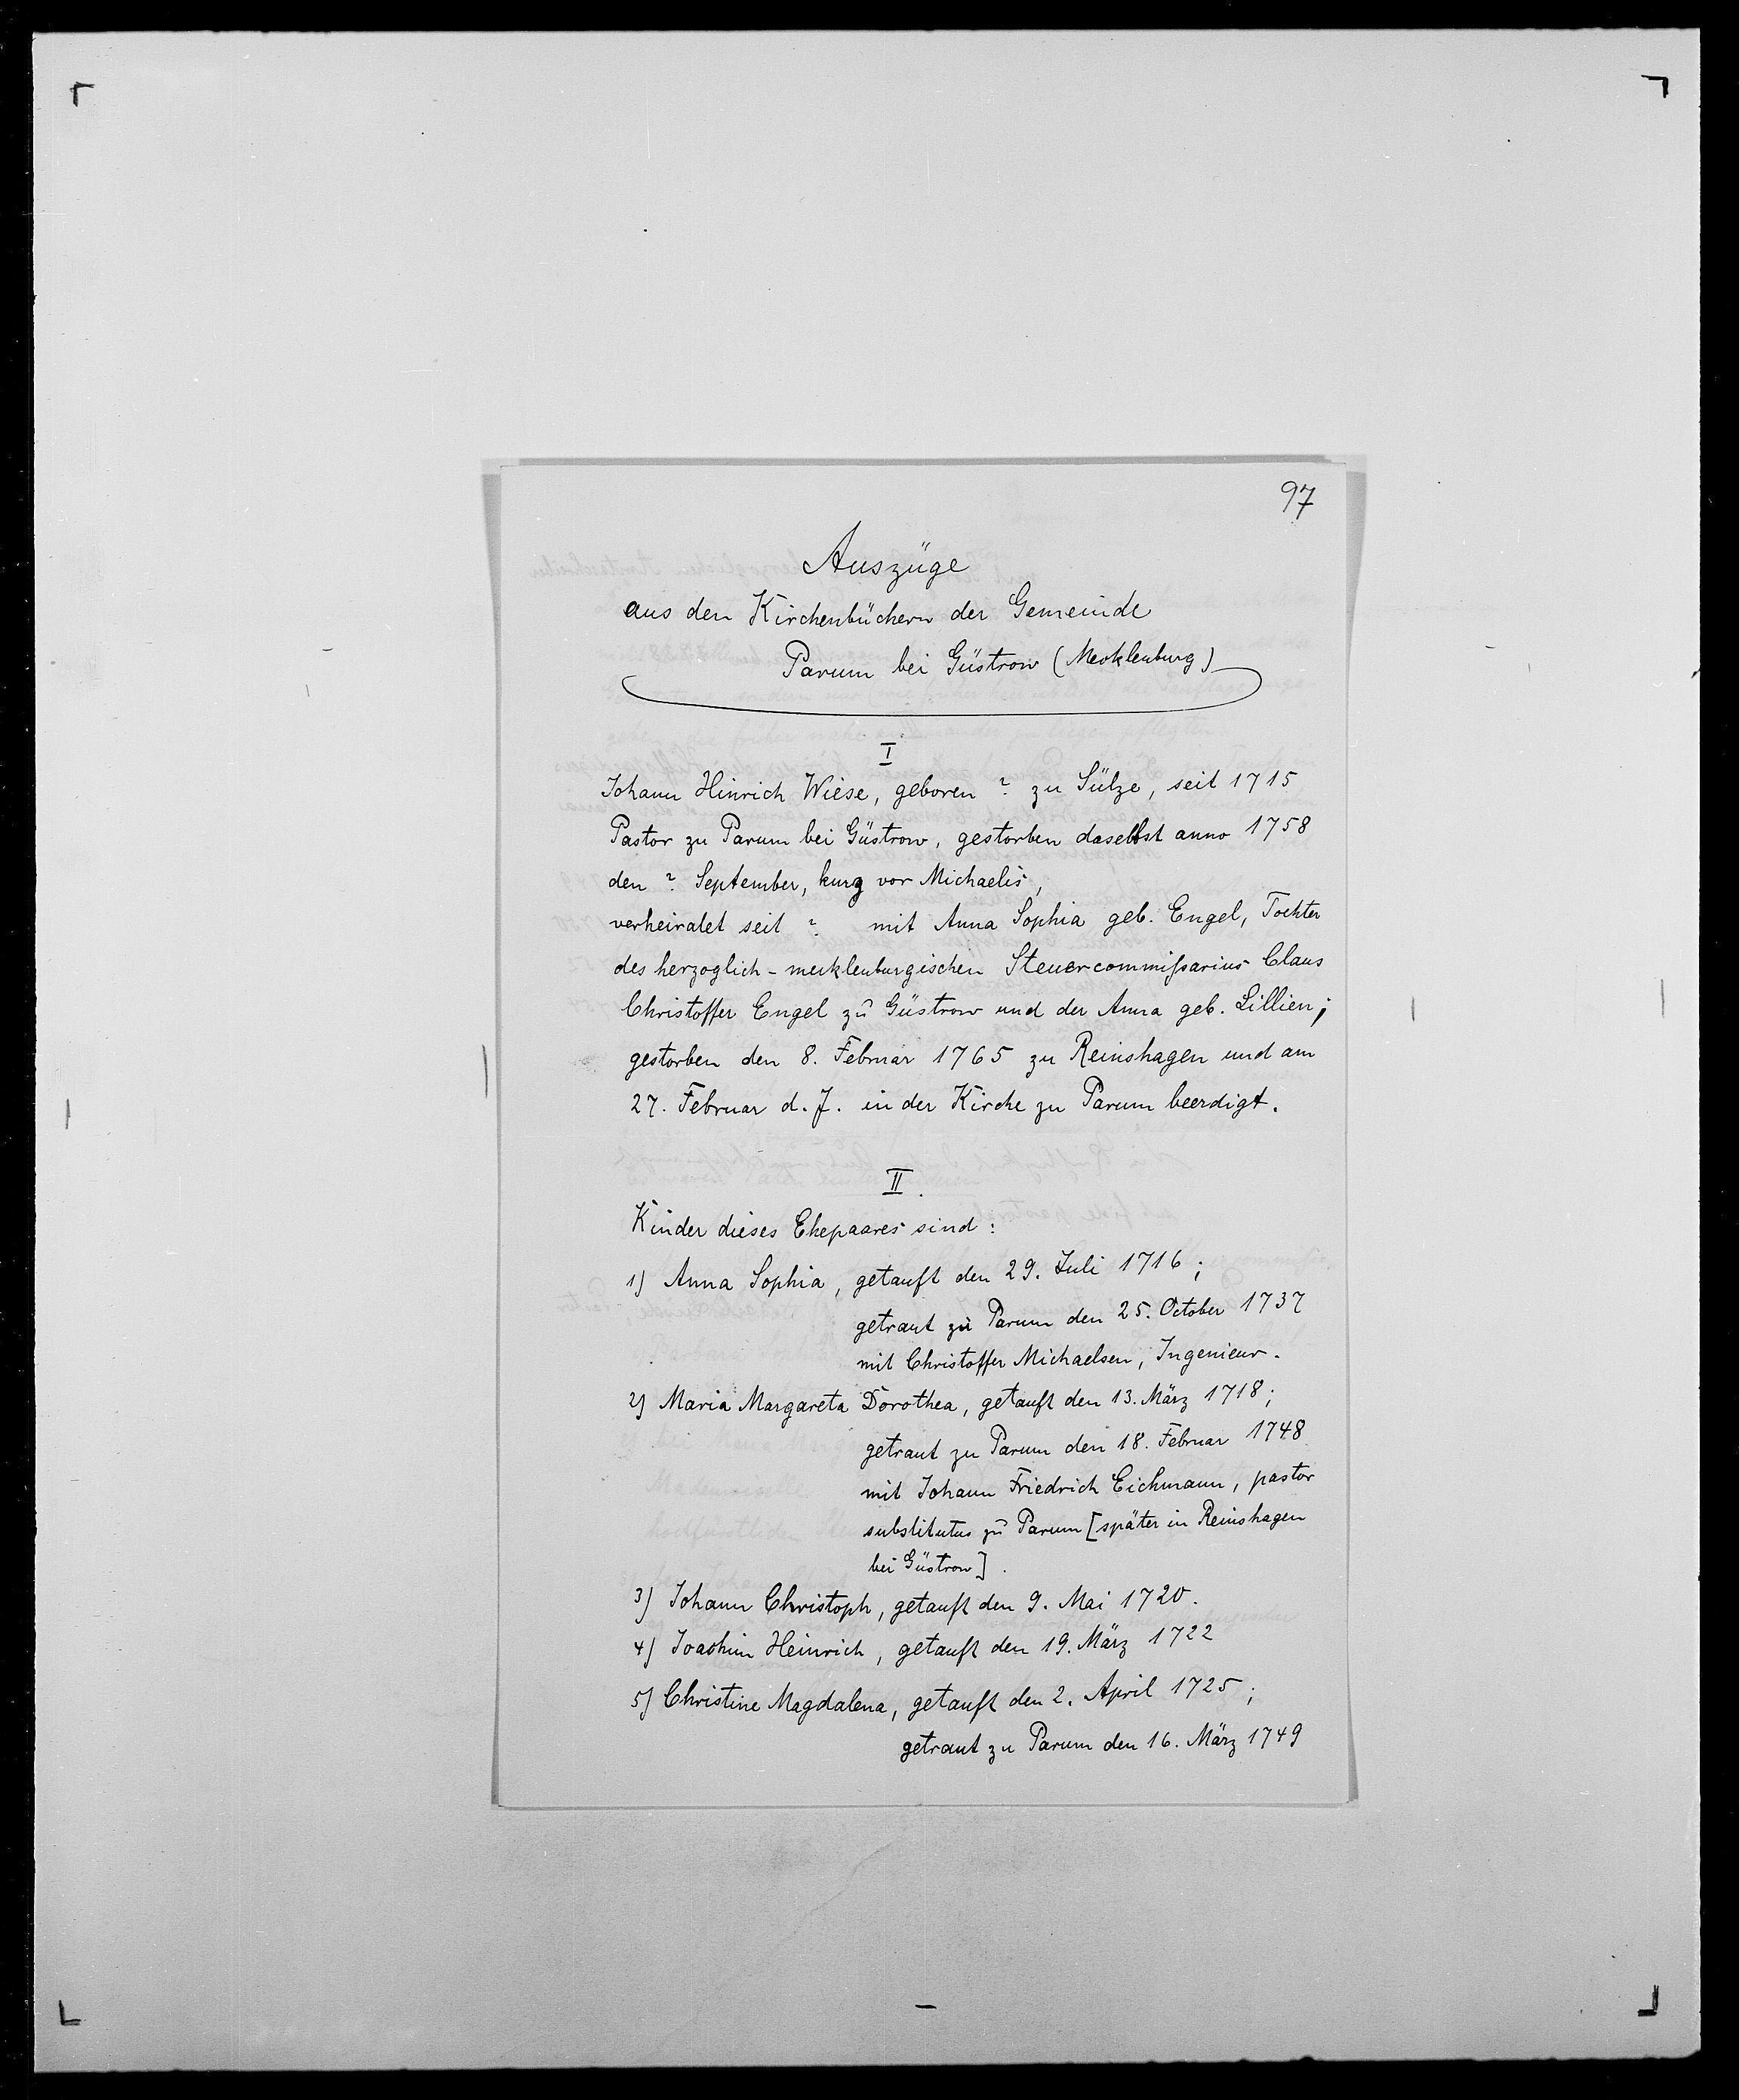 97
Auszüge
aus den Kirchenbüchern der Gemeinde
Parum bei Güstrow (Mecklenburg)
I
Johann Hinrich Wiese, geboren ? zu Sülze, seit 1715
Pastor zu Parum bei Güstrow, gestorben daselbst anno 1758
den ? September, kurz vor Michaelis,
verheiratet seit ? mit Anna Sophia geb. Engel, Tochter
des herzoglich-mecklenburgischen Steuercommißarius Claus
Christoffer Engel zu Güstrow und der Anna geb. Lillien;
gestorben den 8. Februar 1765 zu Reinshagen und am
27. Februar d. J. in der Kirche zu Parum beerdigt.
II.
Kinder dieses Ehepaares sind:
1) Anna Sophia, getauft den 29. Juli 1716;
getraut zu Parum den 25. October 1737
mit Christoffer Michaelsen, Ingenieur.
2) Maria Margareta Dorothea, getauft den 13. März 1718;
getraut zu Parum den 18. Februar 1748
mit Johann Friedrich Eichmann, pastor
substitutus zu Parum [später in Reinshagen
bei Güstrow].
3) Johann Christoph, getauft den 9. Mai 1720.
4) Joachim Heinrich, getauft den 19. März 1722
5) Christine Magdalena, getauft den 2. April 1725;
getraut zu Parum den 16. März 1749